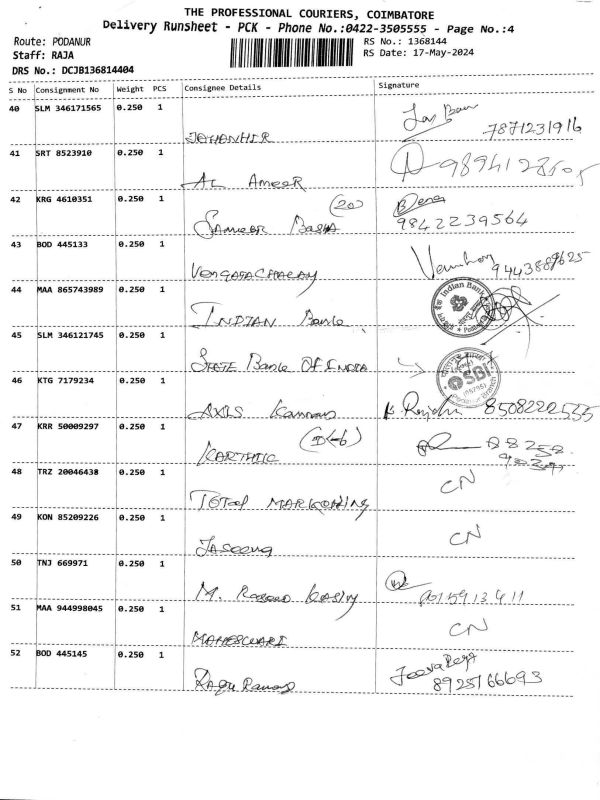 THE PROFESSIONAL COURIERS, COIMBATORE
Delivery Runsheet - PCK - Phone No.:0422-3505555 - Page No.:4
Route: PODANUR RS No.: 1368144
Staff: RAJA RS Date: 17-May-2024
DRS No.: DCJB136814404
S No Consignment No Weight PCS Consignee Details Signature
40 SLM 346171565 0.250 1
JAHANHIR 7871231916
41 SRT 8523910 0.250 1
AL AmeeR
42 KRG 4610351 0.250 1 (20)
Sameer Basha 9842239564
43 BOD 445133 0.250 1
VengatachalaM 9443889625
44 MAA 865743989 0.250 1 Indian Bank
INDIAN Bank
45 SLM 346121745 0.250 1
STATE Bank OF INDIA SBI
46 KTG 7179234 0.250 1
AXIS 8508222555
47 KRR 50009297 0.250 1
KARTHIC
48 TRZ 20046438 0.250 1 CN
TOTal MARKetting
49 KON 85209226 0.250 1 CN
JASeena
50 TNJ 669971 0.250 1
M.
51 MAA 944998045 0.250 1 CN
MAHESWARI
52 BOD 445145 0.250 1
8925166693